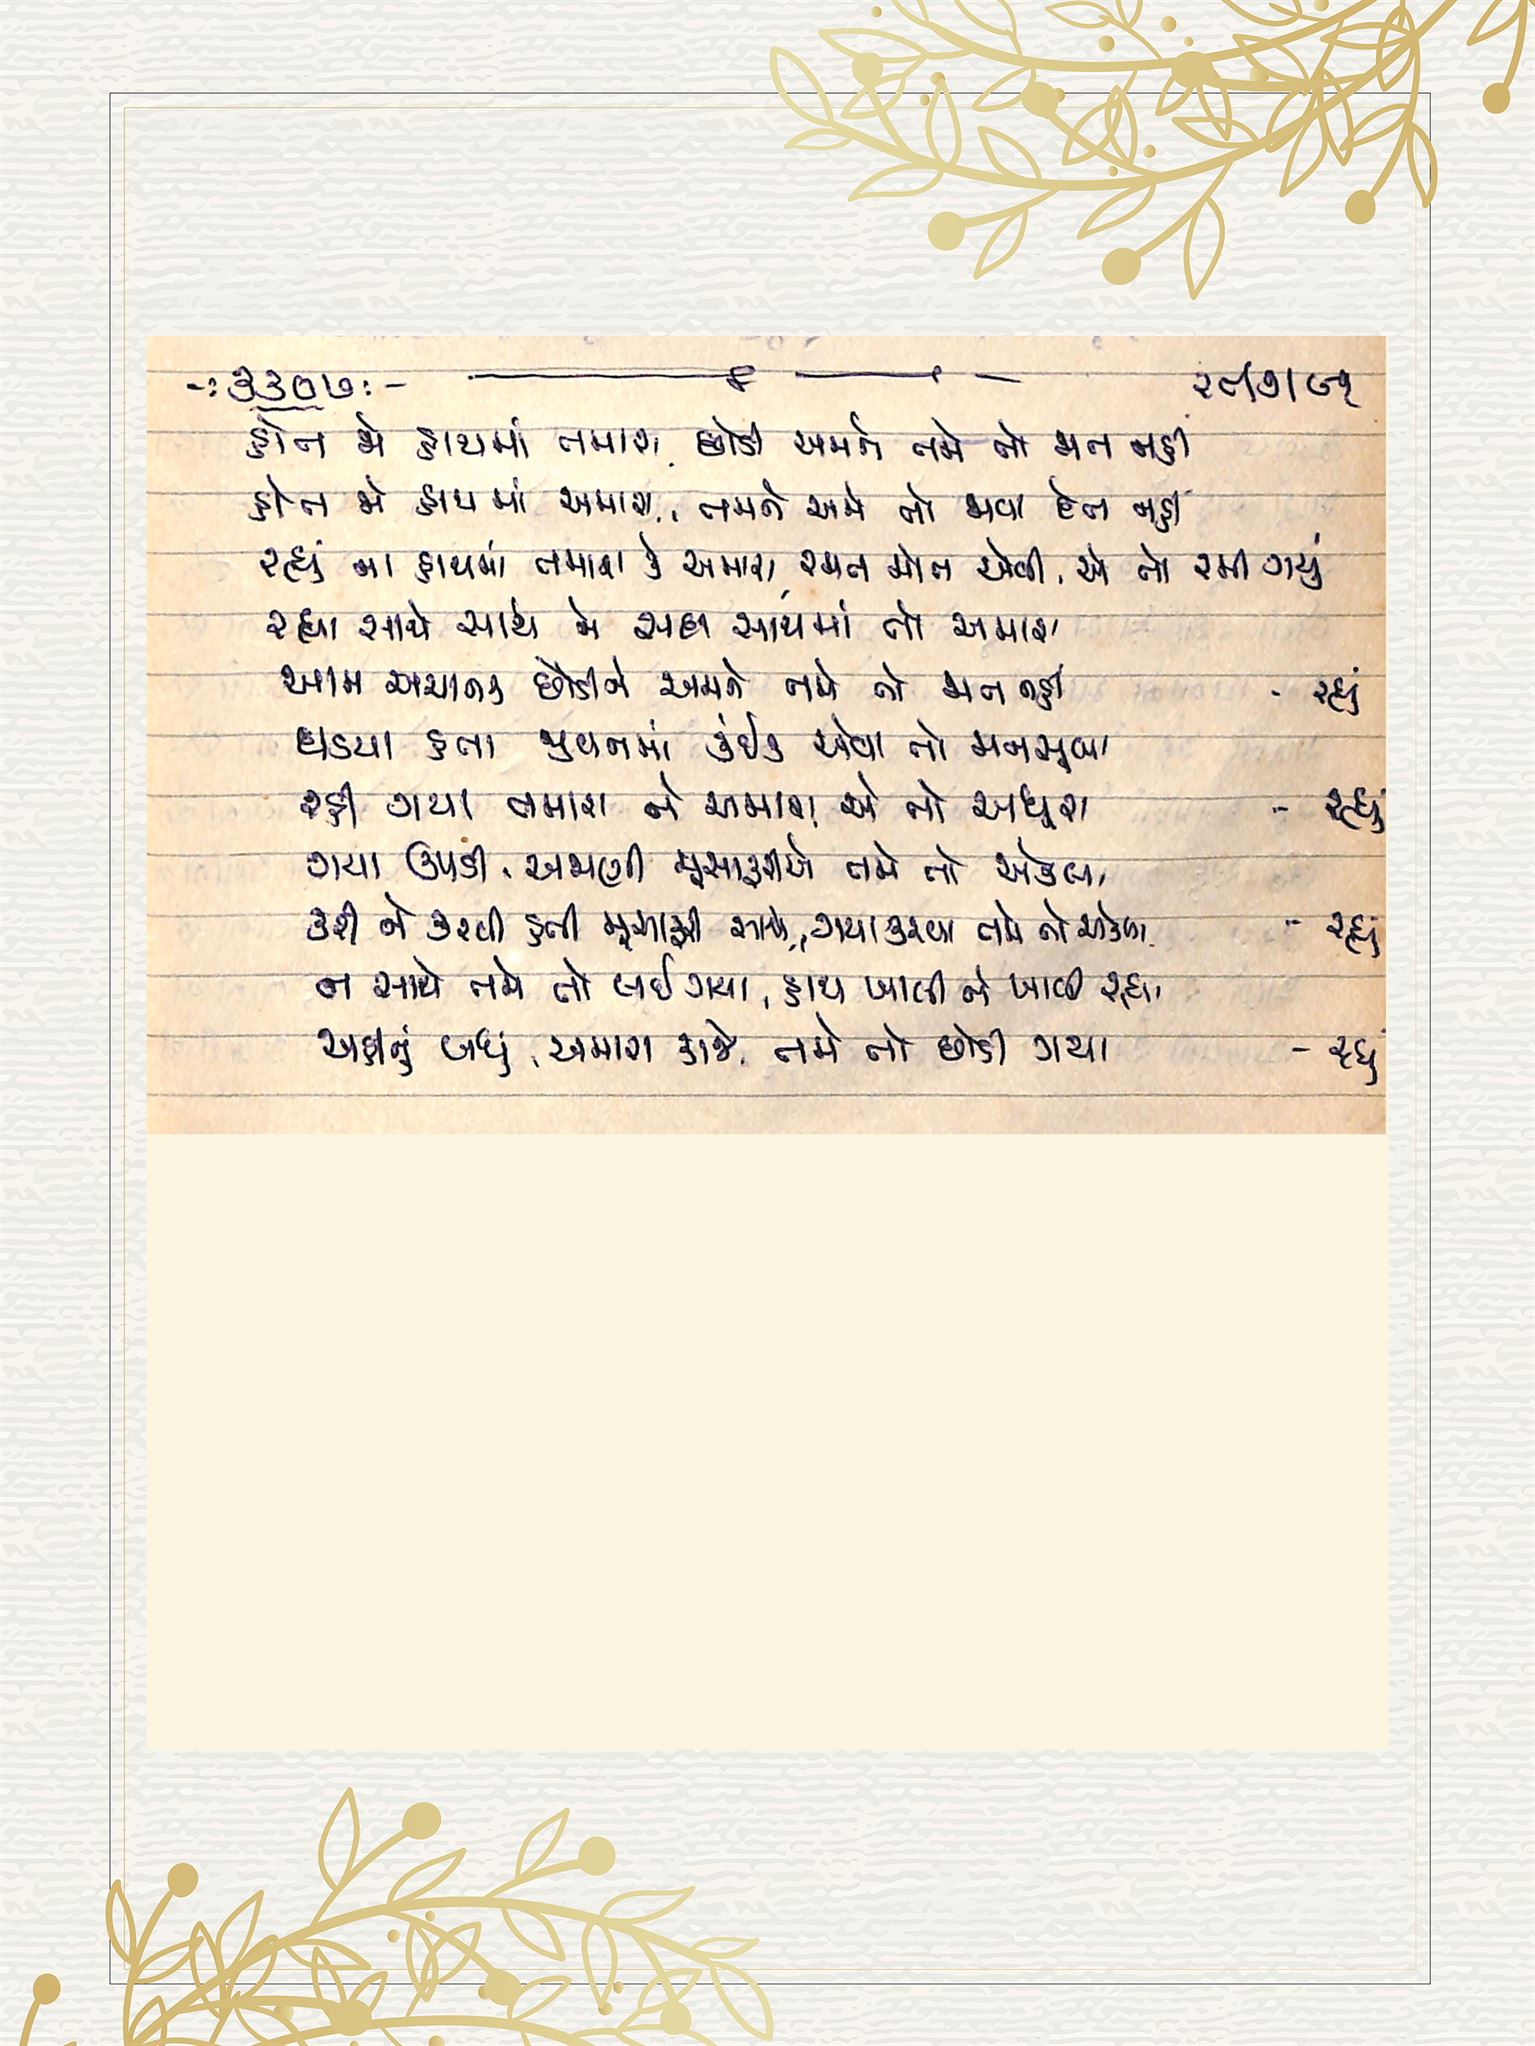 -: ૩૩૦૭ :- ૨૯/૭/૯૧
હોત જો હાથમાં તમારા, છોડી અમને તમે તો જાત નહીં
હોત જો હાથમાં અમારા, તમને અમે તો જાવા દેત નહીં
રહ્યું ના હાથમાં તમારા કે અમારા, રમત મોત એવી, એ તો રમી ગયું
રહ્યા સાથે સાથે જે સદા સાથમાં તો અમારા
આમ અચાનક છોડીને અમને તમે તો જાત નહીં - રહ્યું
ઘડયા હતા જીવનમાં કંઈક એવા તો મનસૂબા
રહી ગયા તમારા ને અમારા એ તો અધૂરા - રહ્યું
ગયા ઉપડી, અજાણી મૂસાફરીએ તમે તો એકલા
કરી ને કરવી હતી મૂસાફરી સાથે, ગયા કરવા તમે તો એકલા - રહ્યું
ન સાથે તમે તો લઈ ગયા, હાથ ખાલી ને ખાલી રહ્યા
અહીંનું બધું, અમારા કાજે, તમે તો છોડી ગયા - રહ્યું